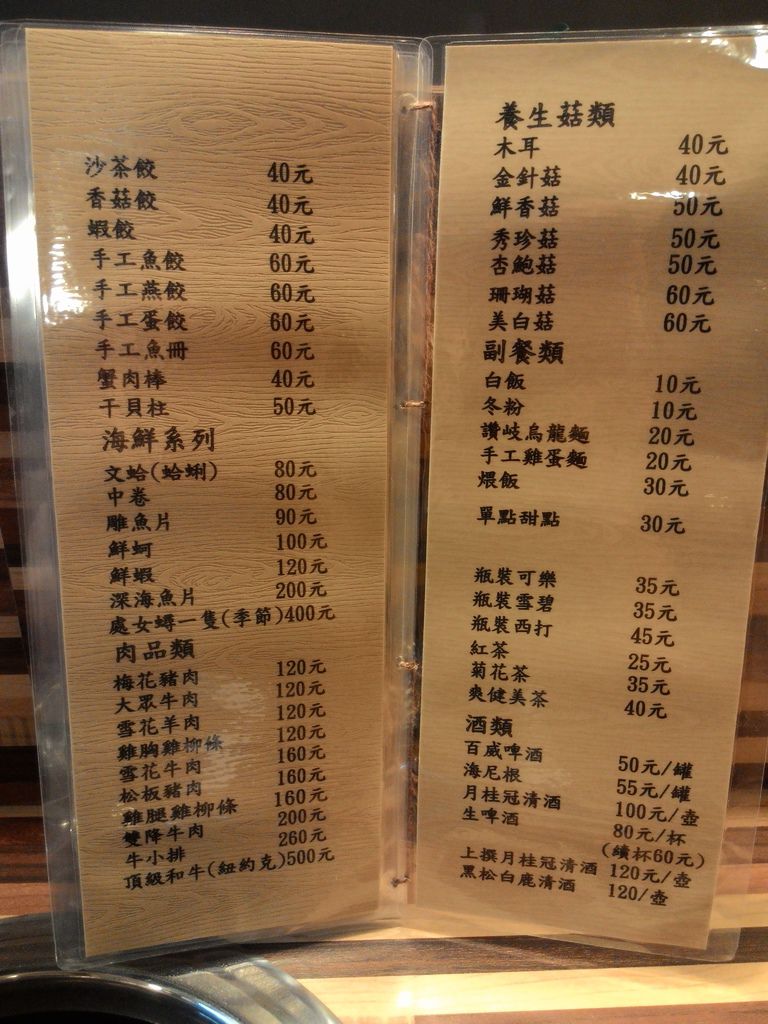 沙茶餃 40元
香菇餃 40元
蝦餃 40元
手工魚餃 60元
手工燕餃 60元
手工蛋餃 60元
手工魚冊 60元
蟹肉棒 40元
干貝柱 50元
海鮮系列
文蛤(蛤蜊) 80元
中卷 80元
鵰魚片 90元
鮮蚵 100元
鮮蝦 120元
深海魚片 200元
處女蟳一隻(季節)400元
肉品類
梅花豬肉 120元
大眾牛肉 120元
雪花羊肉 120元
雞胸雞柳條 120元
雪花牛肉 160元
松板豬肉 160元
雞腿雞柳條 160元
雙降牛肉 200元
牛小排 260元
頂級和牛(紐約克)500元
養生菇類
木耳 40元
金針菇 40元
鮮香菇 50元
秀珍菇 50元
杏鮑菇 50元
珊瑚菇 60元
美白菇 60元
副餐類
白飯 10元
冬粉 10元
讚岐烏龍麵 20元
手工雞蛋麵 20元
煨飯 30元
單點甜點 30元
瓶裝可樂 35元
瓶裝雪碧 35元
瓶裝西打 45元
紅茶 25元
菊花茶 35元
爽健美茶 40元
酒類
百威啤酒 50元/罐
海尼根 55元/罐
月桂冠清酒 100元/壺
生啤酒 80元/杯
(續杯60元)
上撰月桂冠清酒 120元/壺
黑松白鹿清酒 120/壺